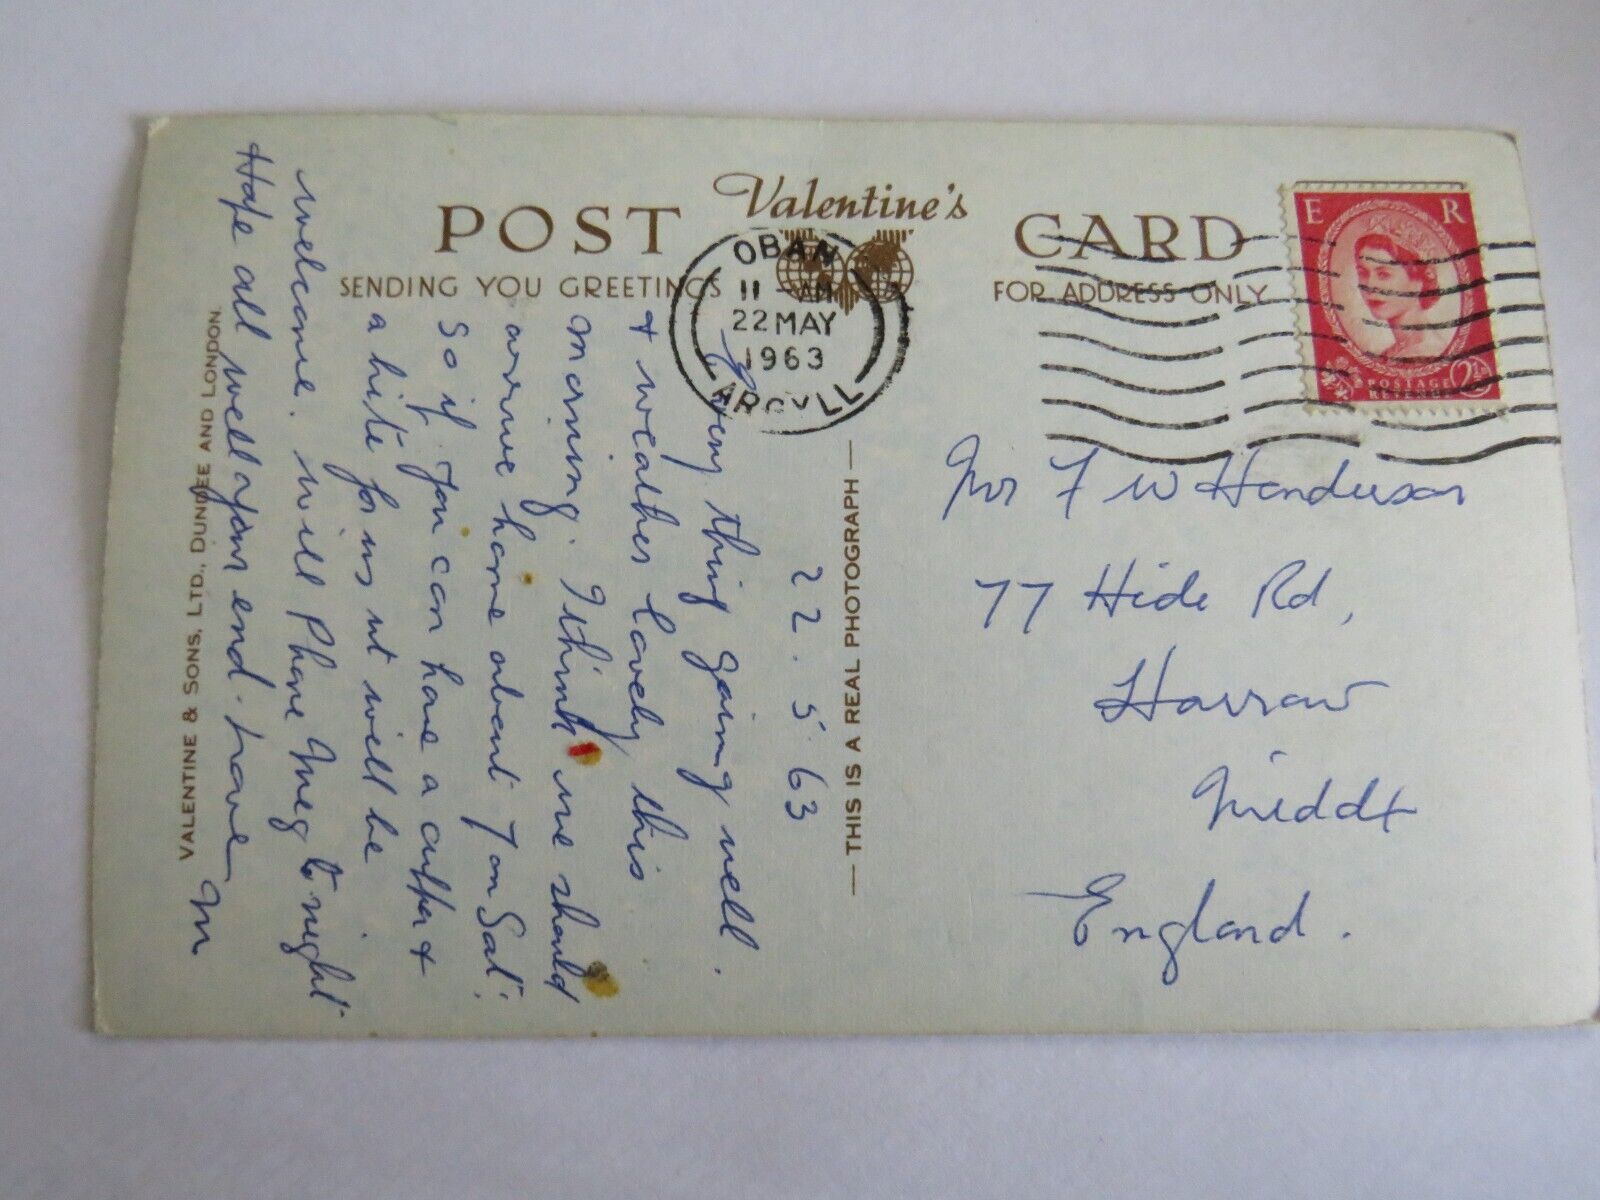 Valentine's
POST CARD
SENDING YOU GREETINGS
FOR ADDRESS ONLY
OBAN
11 - AM
22 MAY
1963
ARGYLL
E R
POSTAGE
REVENUE
2½
22.5.63
Every thing going well.
+ weather lovely this
morning. I think we should
arrive home about 7 on Sat.
So if you can have a cuppa +
a bite for us it will be
welcome. will Phone Meg to night
Hope all well your end. love
M
VALENTINE & SONS, LTD., DUNDEE AND LONDON.
— THIS IS A REAL PHOTOGRAPH —
Mr F W Henderson
77 Hide Rd,
Harrow
Middx
England.